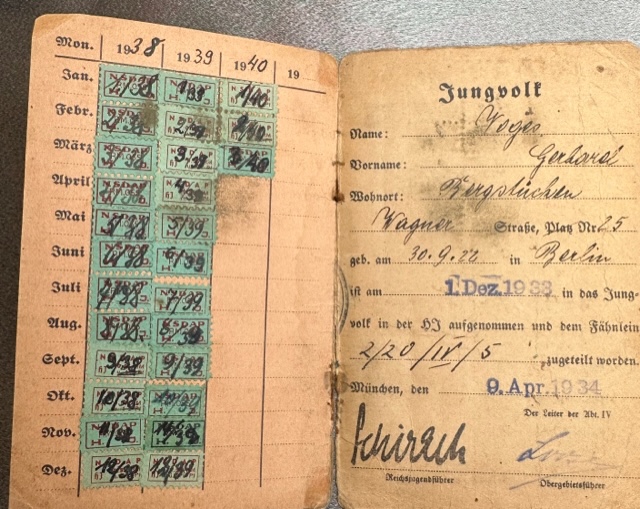 Mon. 1938 1939 1940 19
Jan. 1/38 1/39 1/40
Febr. 2/38 2/39 2/40
März 3/38 3/39 3/40
April 4/39
Mai 5/38 5/39
Juni 6/38 6/39
Juli 7/38 7/39
Aug. 8/38 8/39
Sept. 9/38 9/39
Okt. 10/38 10/39
Nov. 11/38 11/39
Dez. 12/38 12/39
Jungvolk
Name: Voges
Vorname: Gerhard
Wohnort:
Wagner Straße, Platz Nr. 25
geb. am 30.9.22 in Berlin
ist am 1. Dez. 1933 in das Jung-
volk in der HJ aufgenommen und dem Fähnlein
2/20/IV/5 zugeteilt worden.
München, den 9. Apr. 1934
Der Leiter der Abt. IV
Schirach
Reichsjugendführer Obergebietsführer